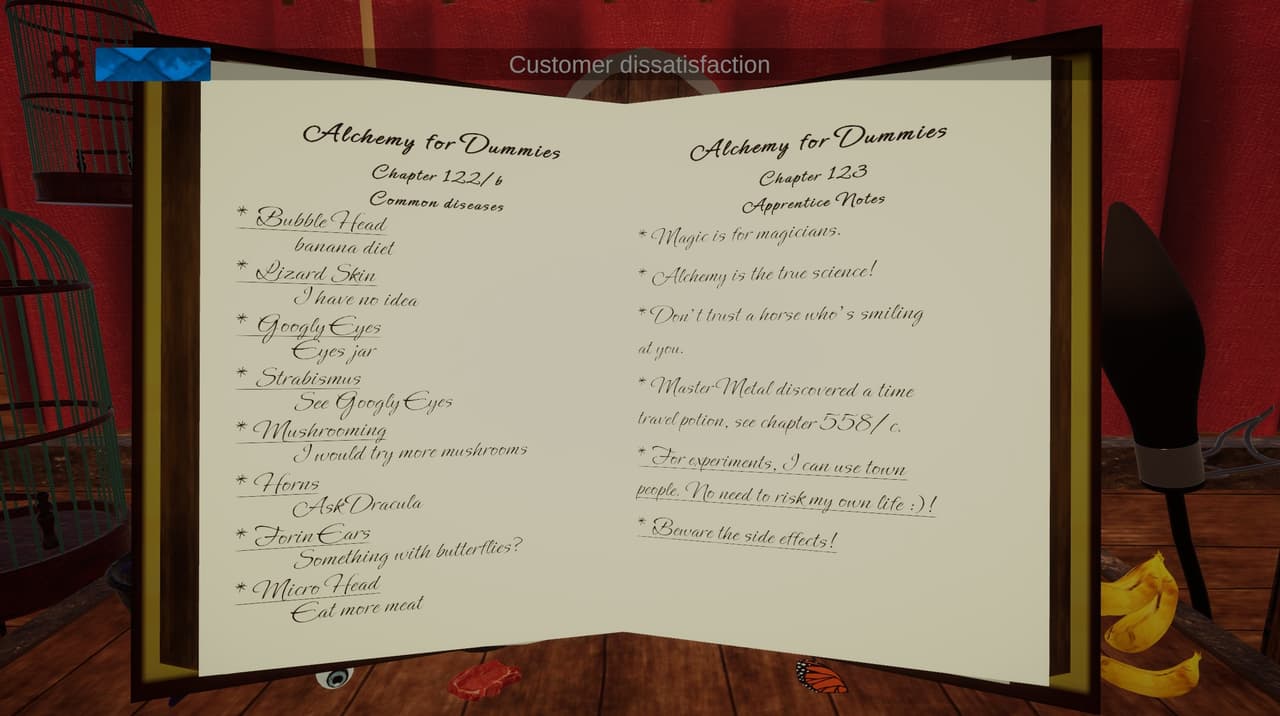 Customer dissatisfaction
Alchemy for Dummies
Chapter 122/b
Common diseases
* Bubble Head
banana diet
* Lizard Skin
I have no idea
* Googly Eyes
Eyes jar
* Strabismus
See Googly Eyes
* Mushrooming
I would try more mushrooms
* Horns
Ask Dracula
* Forin Ears
Something with butterflies?
* Micro Head
Eat more meat
Alchemy for Dummies
Chapter 123
Apprentice Notes
* Magic is for magicians.
* Alchemy is the true science!
* Don't trust a horse who's smiling
at you.
* Master Metal discovered a time
travel potion, see chapter 558/c.
* For experiments, I can use town
people. No need to risk my own life :)!
* Beware the side effects!